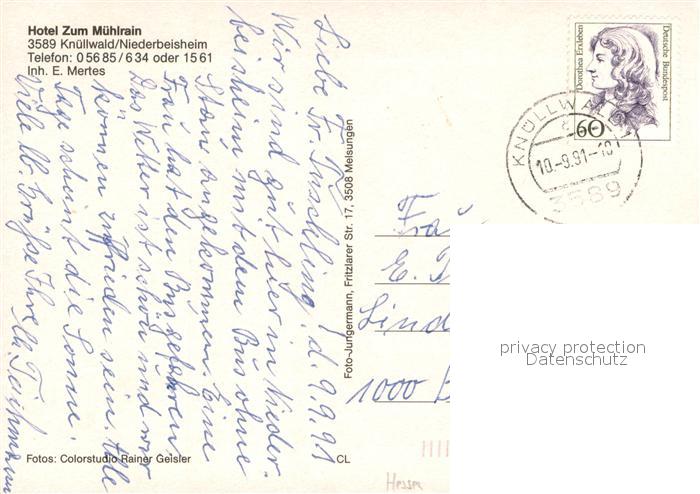 Hotel Zum Mühlrain
3589 Knüllwald/Niederbeisheim
Telefon: 0 56 85 / 6 34 oder 15 61
Inh. E. Mertes
Liebe Fr. d. 9.9.91
Wir sind gut hier in Nieder-
beisheim mit dem Bus ohne
Stau angekommen. Eine
Frau hat den Bus gefahren.
Das Wetter ist schön und wir
können zufrieden sein. Alle
Tage scheint die Sonne.
Viele lb. Grüße Ihre
Foto-Jungermann, Fritzlarer Str. 17, 3508 Melsungen
Fotos: Colorstudio Rainer Geisler
CL
Dorothea Erxleben
Deutsche Bundespost
60
KNÜLLWALD
10.-9.91-18
3589
Frau
E.
Lind
1000 B
Hessen
privacy protection
Datenschutz